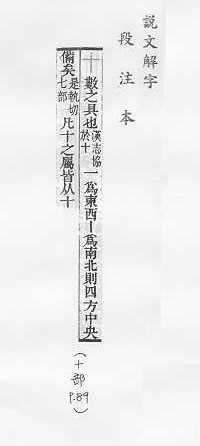 說文解字
段注本
十 數之具也 漢志協於十 一爲東西丨爲南北則四方中央
備矣 是執切七部 凡十之屬皆从十
(十部 P.89)